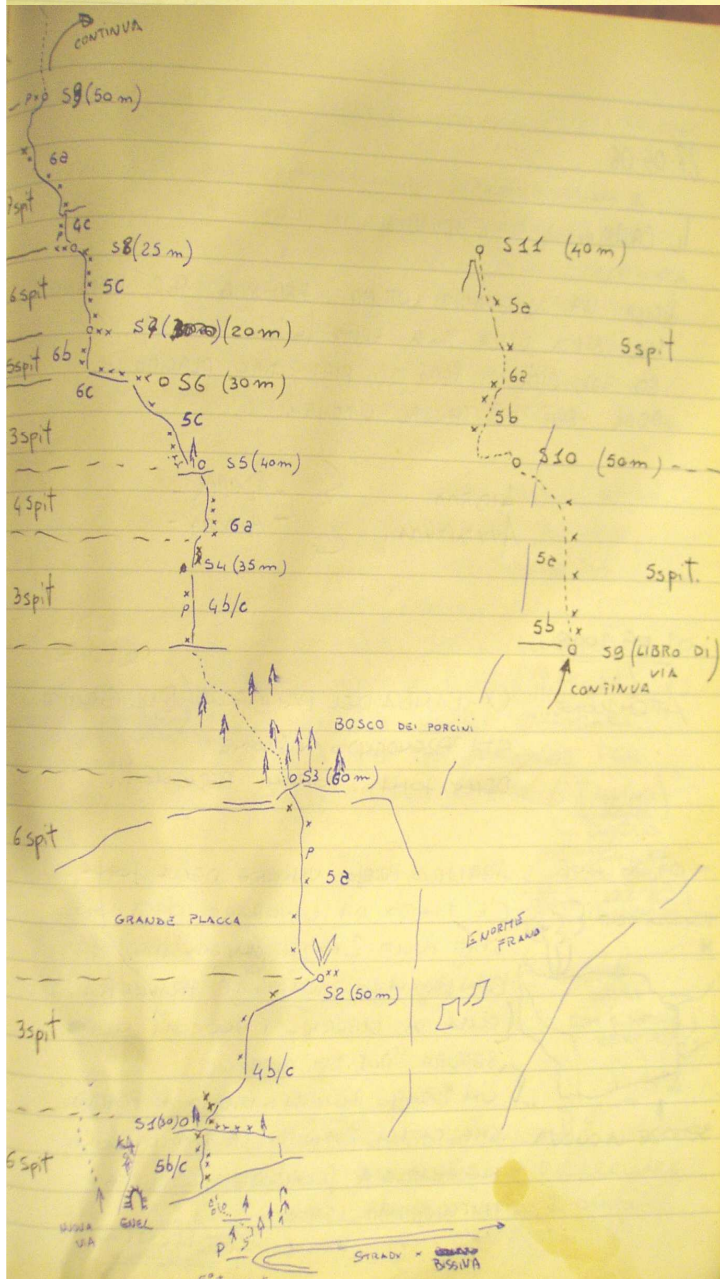 CONTINUA
S9 (50m)
6a
4c
S8 (25m)
6spit
5c
S7 (20m)
5spit
6b
6c
S6 (30m)
5c
3spit
S5 (40m)
4spit
6a
S4 (35m)
3spit
P
4b/c
BOSCO DEI PORCINI
S3 (60m)
6spit
P
5a
GRANDE PLACCA
S2 (50m)
3spit
4b/c
S1 (30)
5b/c
ENEL
NUOVA
VIA
P
STRADA X BISSIVA
S11 (40m)
5a
5spit
6a
5b
S10 (50m)
5a
5spit.
5b
S9 (LIBRO DI
VIA
CONTINUA
ENORME
FRANA